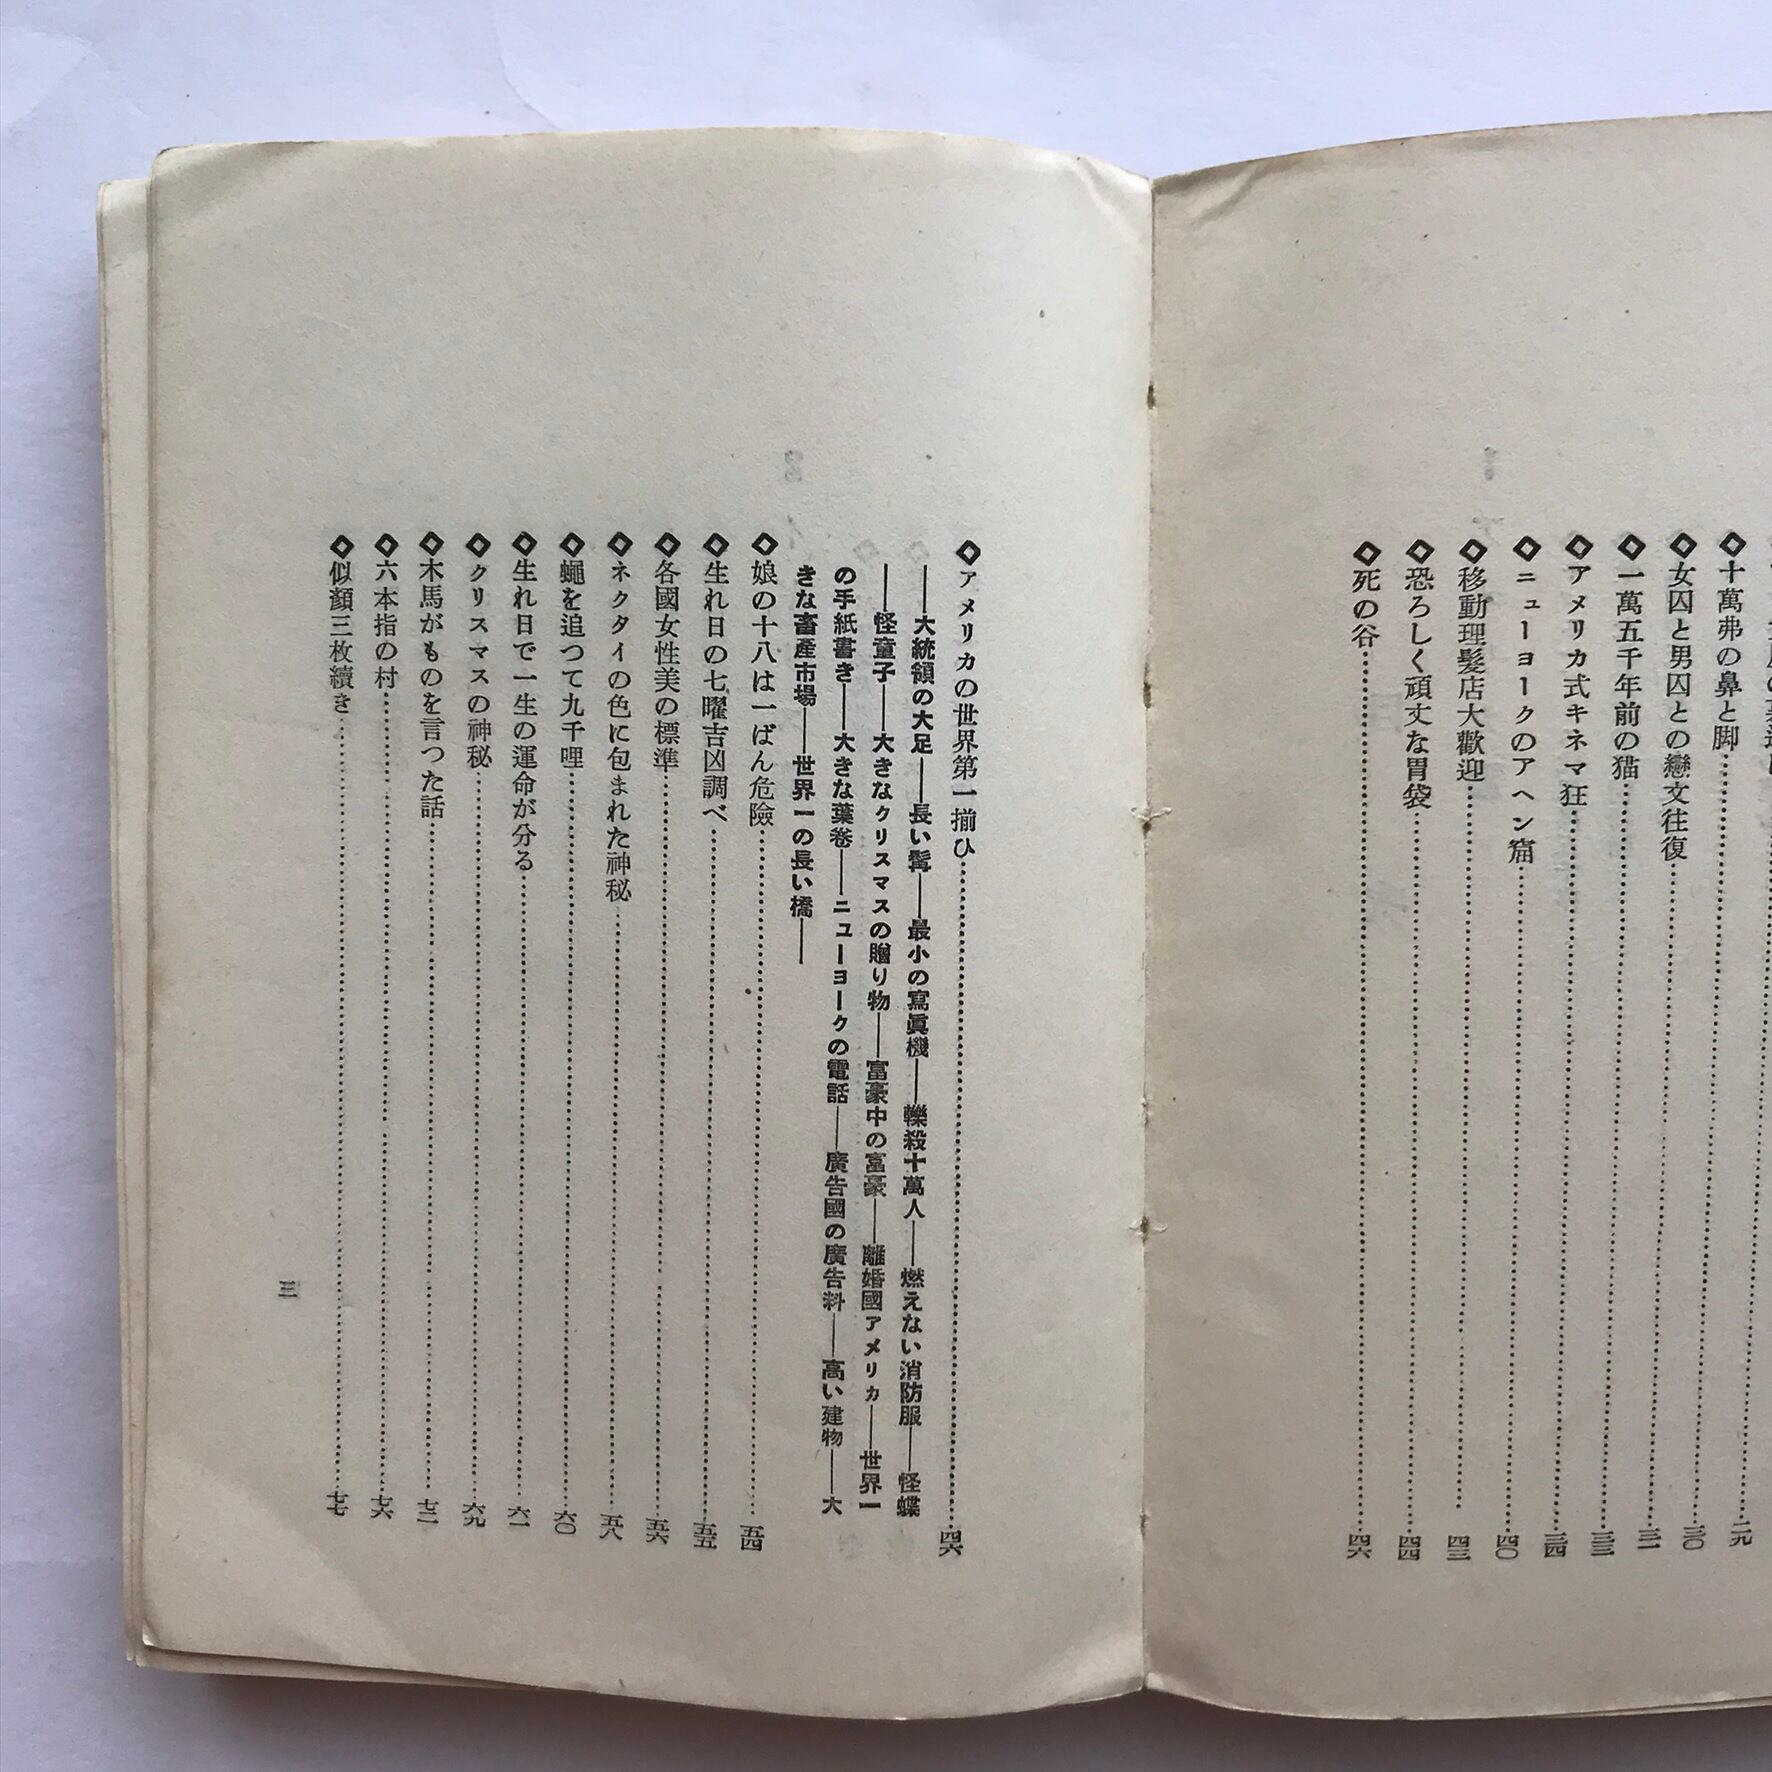 ◇十萬弗の鼻と脚…………二九
◇女囚と男囚との戀文往復…………三〇
◇一萬五千年前の猫…………三一
◇アメリカ式キネマ狂…………三三
◇ニューヨークのアヘン窟…………四〇
◇移動理髮店大歡迎…………四三
◇恐ろしく頑丈な胃袋…………四四
◇死の谷…………四六
◇アメリカの世界第一揃ひ…………四六
――大統領の大足――長い髯――最小の寫眞機――轢殺十萬人――燃えない消防服――怪蝶
――怪童子――大きなクリスマスの贈り物――富豪中の富豪――離婚國アメリカ――世界一
の手紙書き――大きな葉卷――ニューヨークの電話――廣告國の廣告料――高い建物――大
きな畜產市場――世界一の長い橋――
◇娘の十八は一ばん危險…………五四
◇生れ日の七曜吉凶調べ…………五五
◇各國女性美の標準…………五六
◇ネクタイの色に包まれた神秘…………五八
◇蠅を追つて九千哩…………六〇
◇生れ日で一生の運命が分る…………六一
◇クリスマスの神秘…………六九
◇木馬がものを言つた話…………七三
◇六本指の村…………七六
◇似顏三枚續き…………七七
三